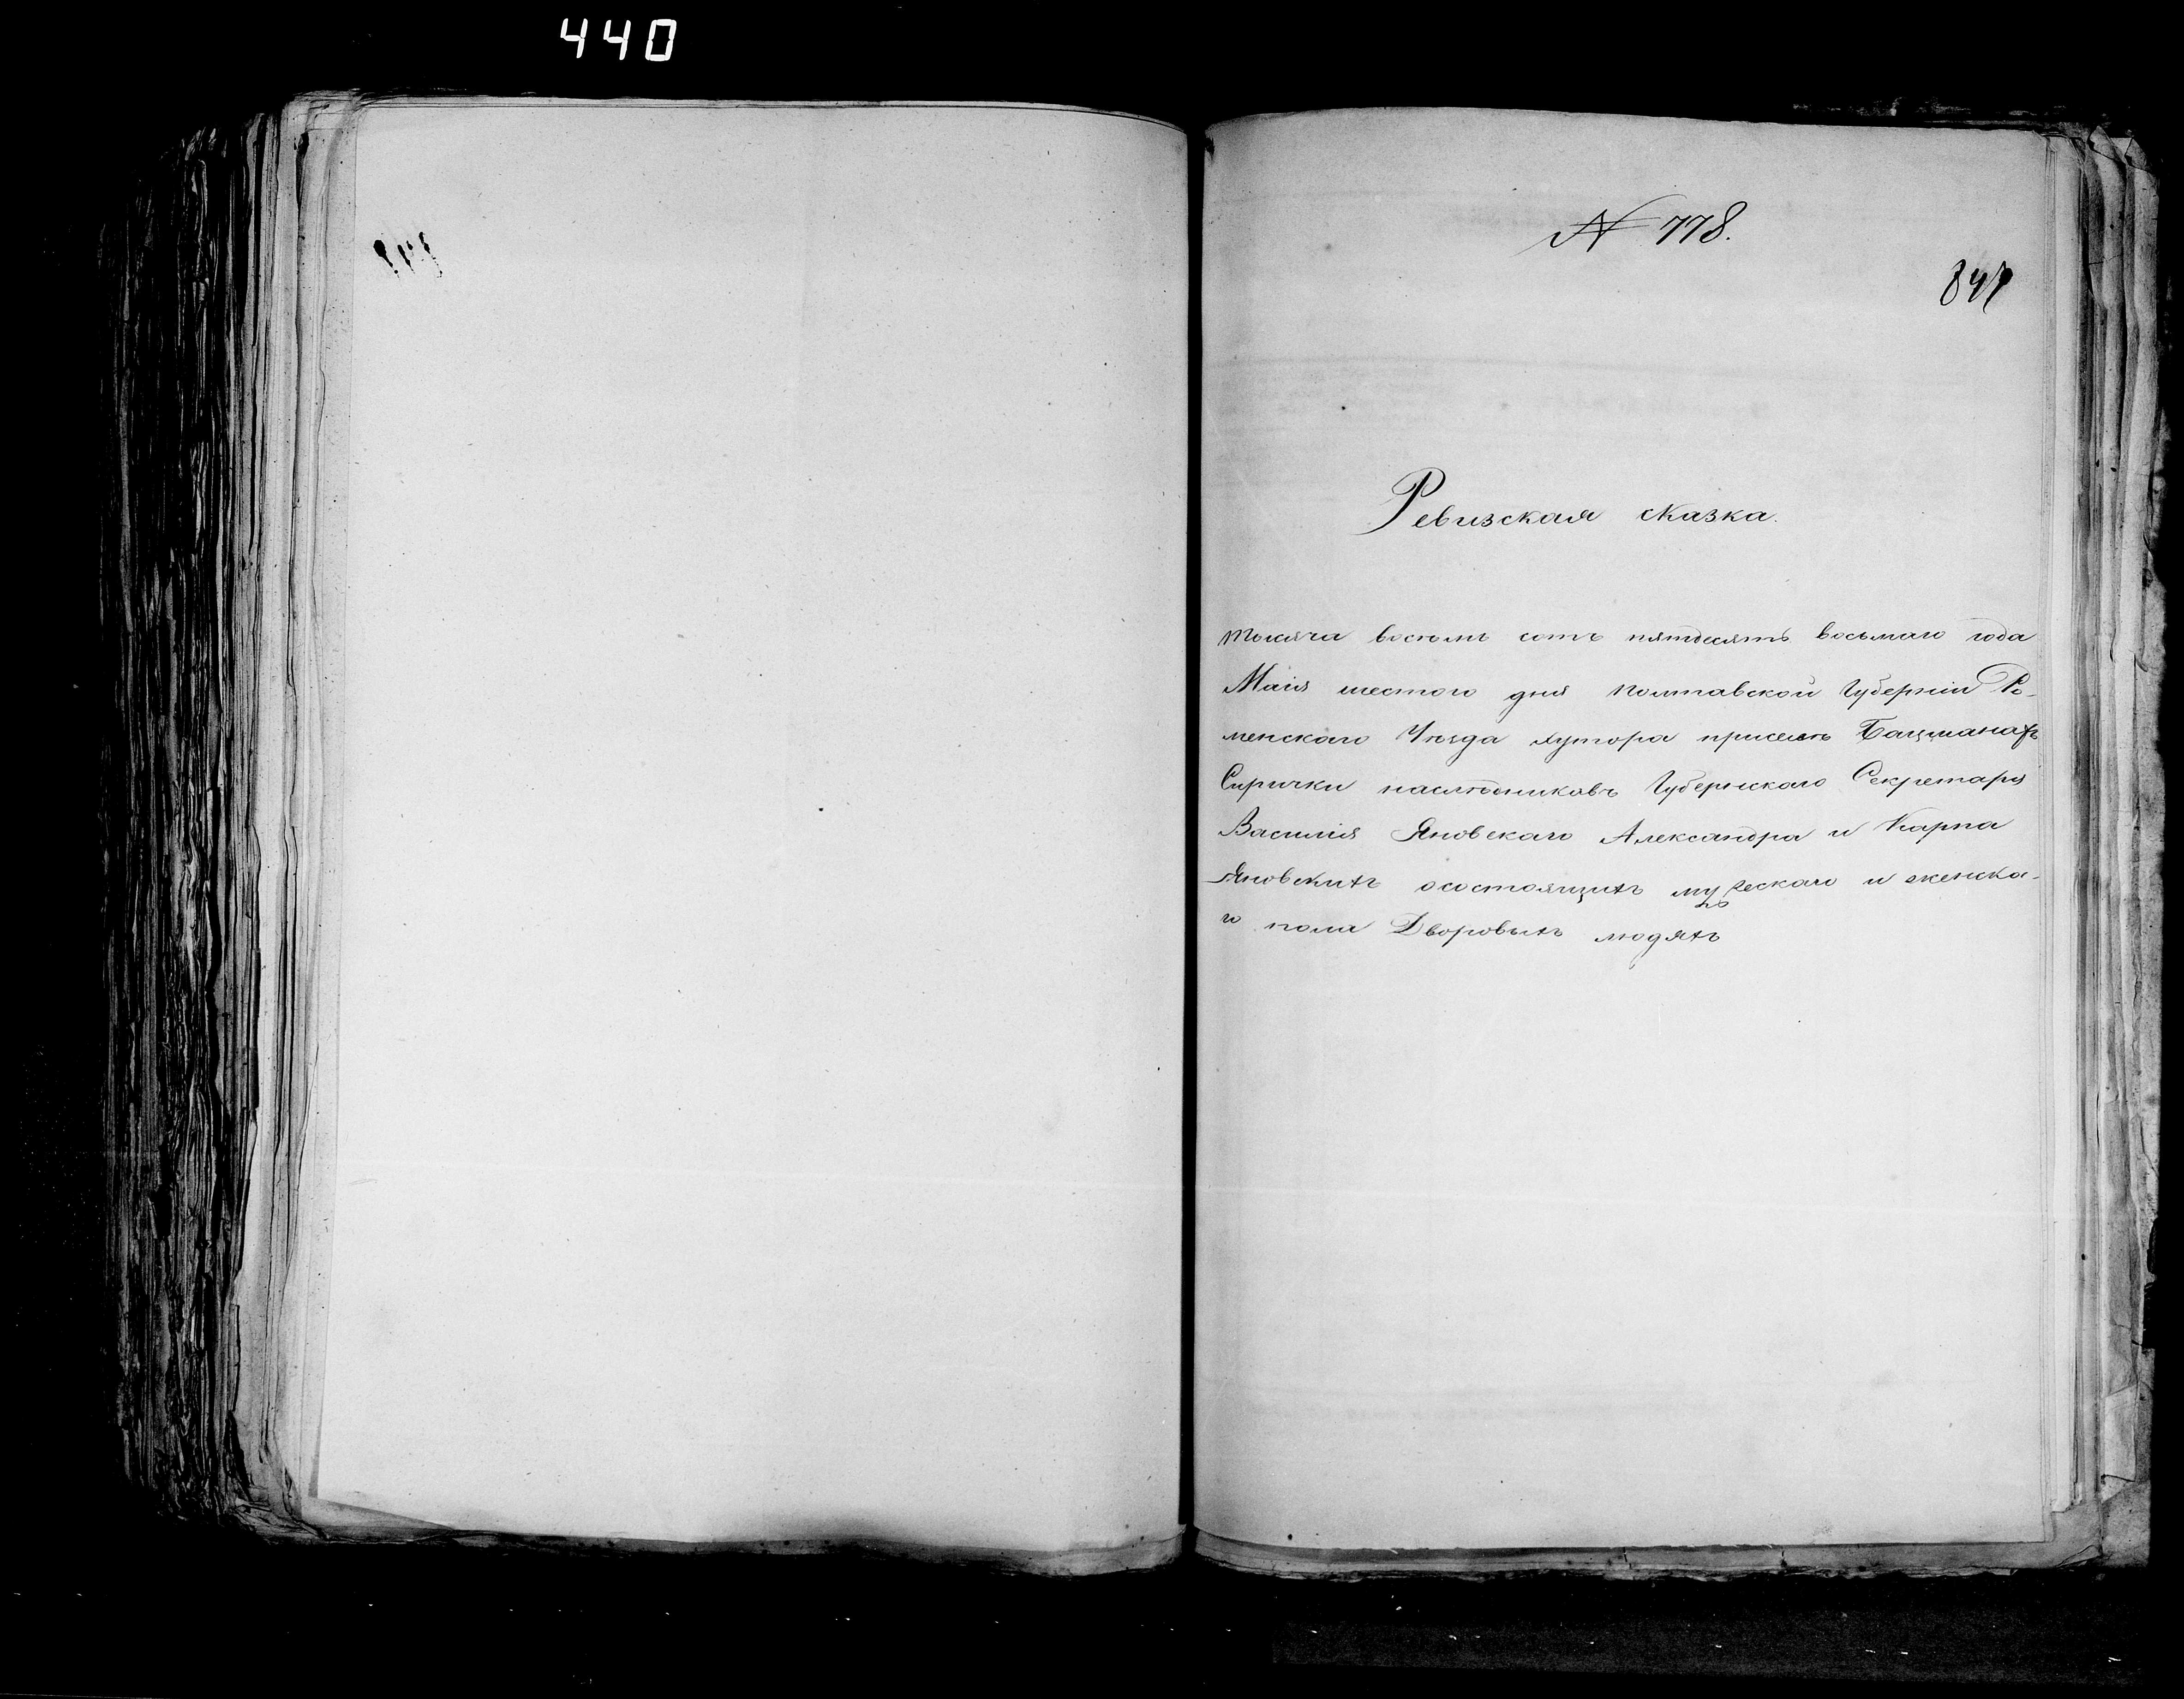 440
№ 778.
847
Ревизская сказка.
тысяча восемь сотъ пятдесятъ восьмаго года
Маія шестого дня Полтавской Губерніи Ро-
менскаго Уѣзда хутора при
Сирички наслѣдниковъ Губернскаго Секретаря
Василія Яновскаго Александра и Карпа
Яновскихъ осостоящихъ мужескаго и женска-
го пола Дворовыхъ людяхъ